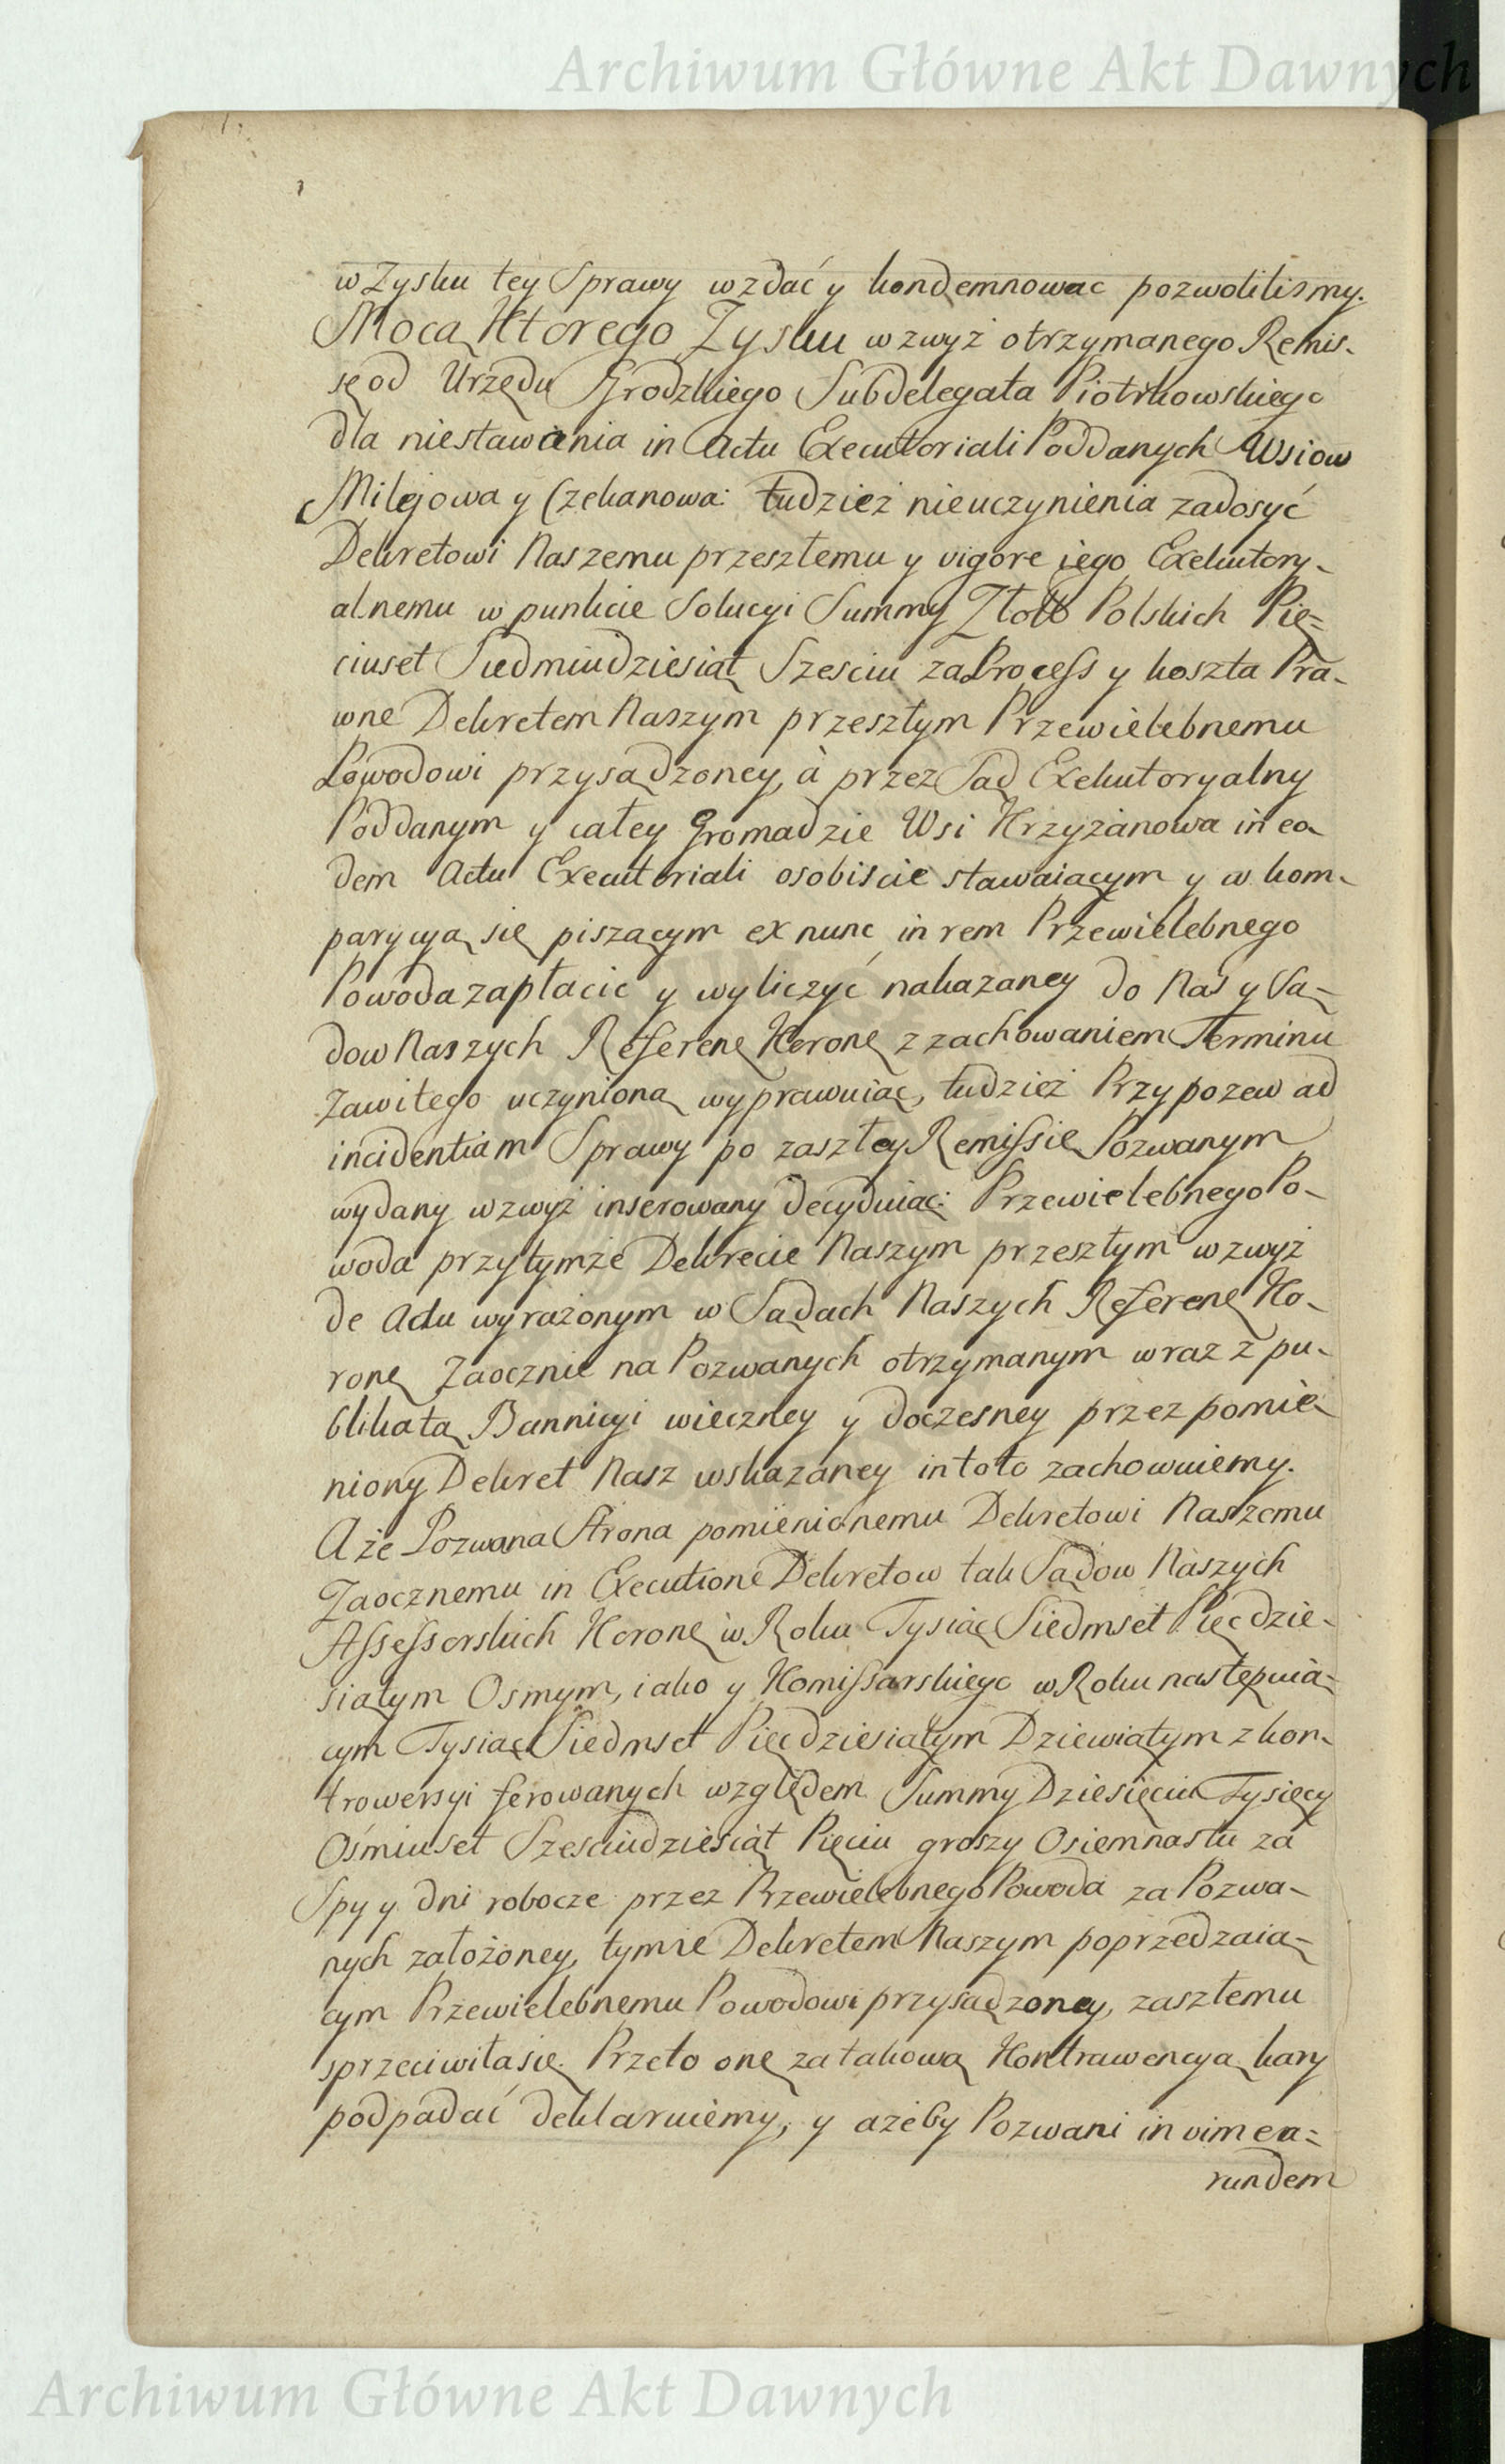 Archiwum Główne Akt Dawnych
w Zysku tey Sprawy wzdać y kondemnowac pozwolilismy.
Mocą Ktorego Zysku wzwyż otrzymanego Remis-
sę od Urzędu Grodzkiego Subdelegata Piotrkowskiego
dla niestawania in Actu Executoriali Poddanych Wsiow
Milejowa y Czekanowa: tudzież nieuczynienia zadosyć
Dekretowi Naszemu przeszłemu y vigore iego Exekutory-
alnemu w punkcie Solucyi Summy Złott Polskich Pię=
ciuset Siedmiudziesiąt Szesciu za Process y koszta Pra-
wne Dekretem Naszym przeszłym Przewielebnemu
Powodowi przysądzoney, à przez Sąd Exekutoryalny
Poddanym y całey Gromadzie Wsi Krzyżanowa in eo-
dem Actu Executoriali osobiscie stawaiącym y w kom-
parycyą się piszącym ex nunc in rem Przewielebnego
Powoda zapłacic y wyliczyć nakazaney do Nas y Są-
dow Naszych Referenę Koronę z zachowaniem Terminu
Zawitego uczynioną wyprawuiąc, tudzież Przypozew ad
incidentiam Sprawy po zaszłey Remissie Pozwanym
wydany wzwyż inserowany decyduiąc: Przewielebnego Po-
woda przy tymże Dekrecie Naszym przeszłym wzwyż
de Actu wyrażonym w Sądach Naszych Referenę Ko-
ronę Zaocznie na Pozwanych otrzymanym wraz z pu-
blikatą Bannicyi wieczney y doczesney przez pomie-
niony Dekret Nasz wskazaney in toto zachowuiemy.
A że Pozwana Strona pomienionemu Dekretowi Naszemu
Zaocznemu in Executione Dekretow tak Sądow Naszych
Assessorskich Koronę w Roku Tysiąc Siedmset Pięcdzie-
siątym Osmym, iako y Komissarskiego w Roku następuią-
cym Tysiąc Siedmset Pięcdziesiątym Dziewiątym z kon-
trowersyi ferowanych względem Summy Dziesięciu Tysięcy
Ośmiuset Szesciudziesiąt Pięciu groszy Osiemnastu za
Spy y dni robocze przez Przewielebnego Powoda za Pozwa-
nych założoney, tymże Dekretem Naszym poprzedzaią-
cym Przewielebnemu Powodowi przysądzoney, zaszłemu
sprzeciwiła się. Przeto onę za takową Kontrawencyą kary
podpadać deklaruiemy, y ażeby Pozwani in vim ea=
rundem
Archiwum Główne Akt Dawnych